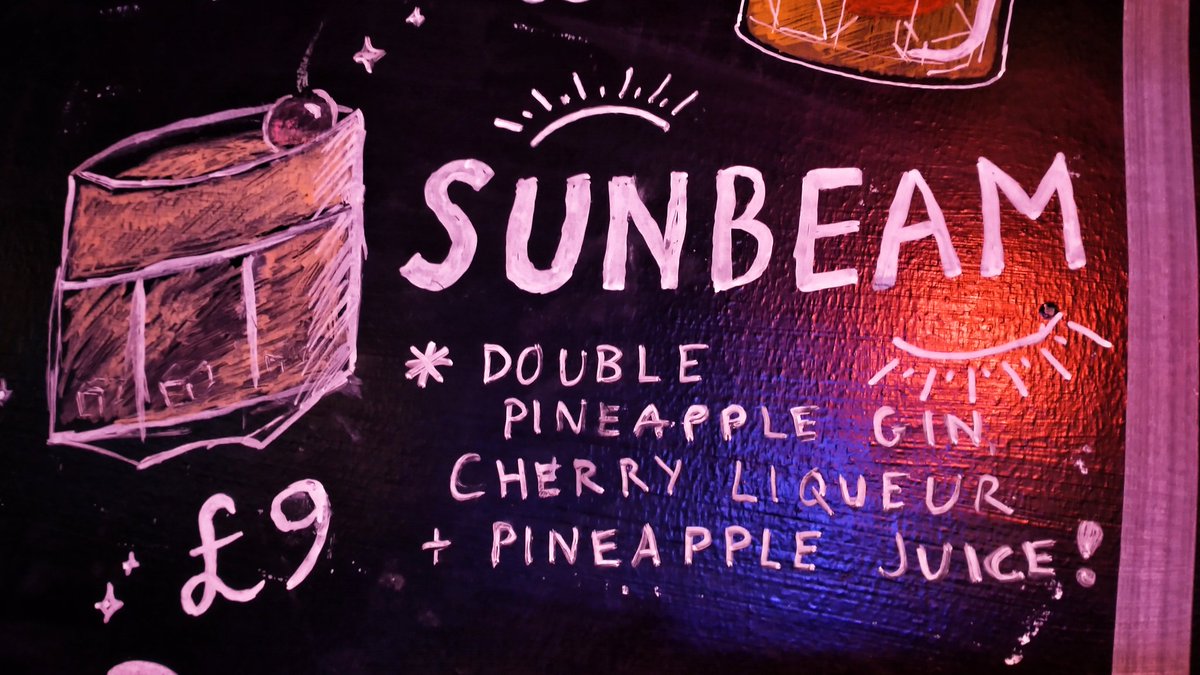 SUNBEAM
* DOUBLE
PINEAPPLE GIN,
CHERRY LIQUEUR
+ PINEAPPLE JUICE!
£9